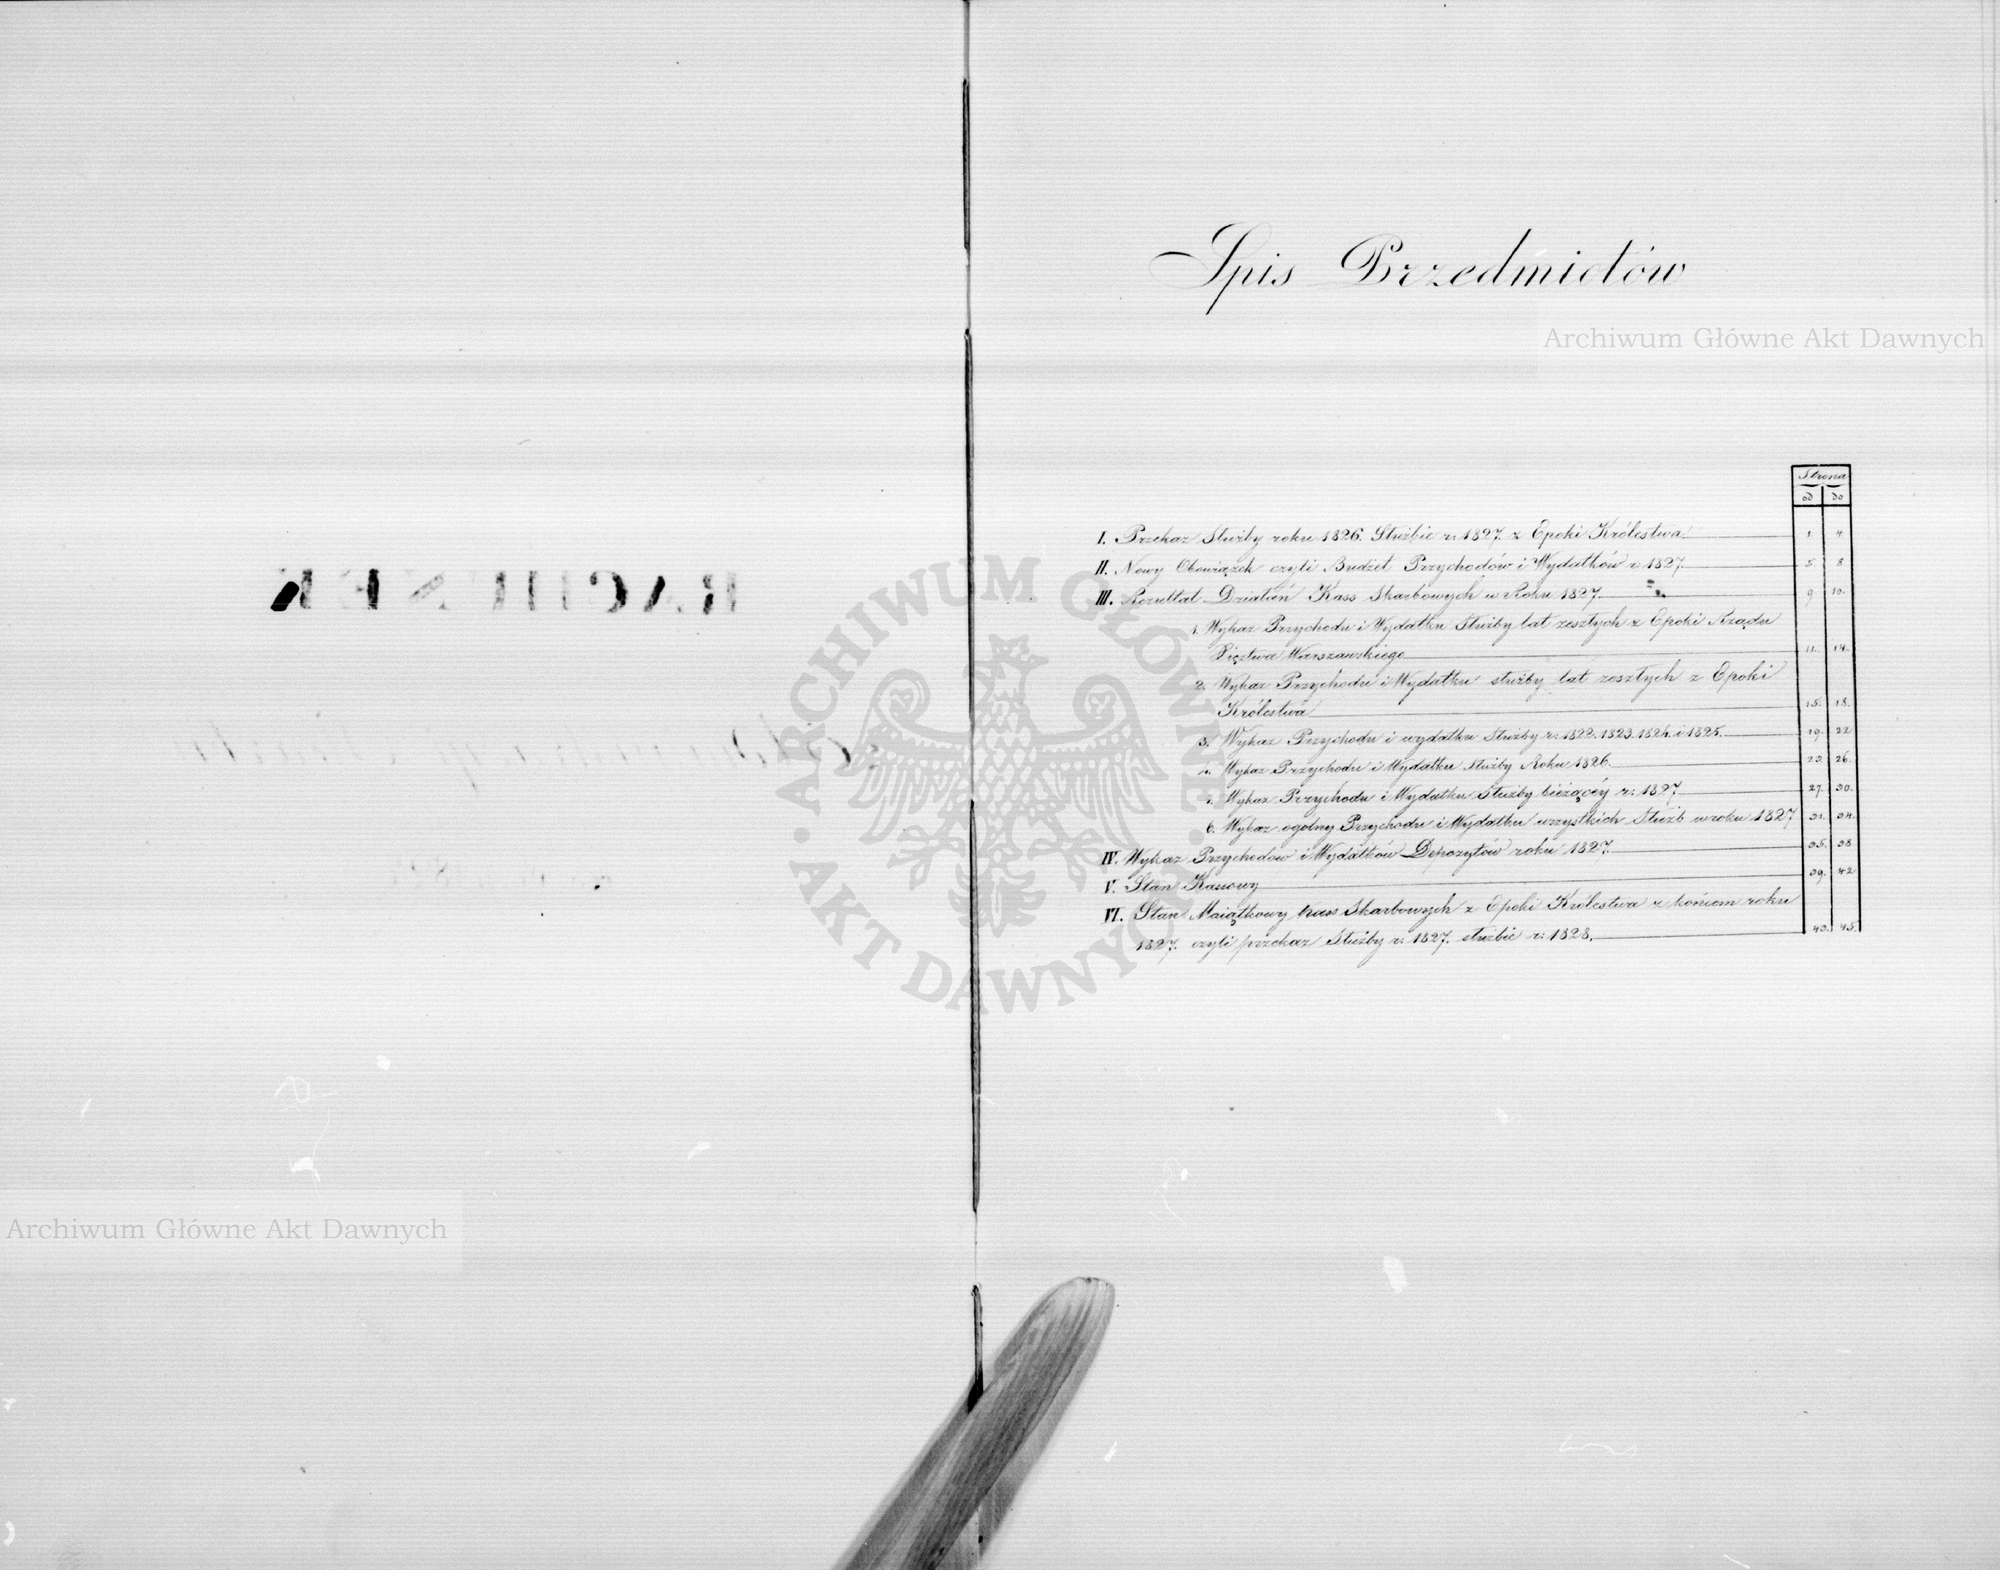 Spis Przedmiotów
Archiwum Główne Akt Dawnych
Strona
od do
I. Przekaz Służby roku 1826. Służbie r: 1827. z Epoki Królestwa 1. 4.
II. Nowy Obowiązek czyli Budżet Przychodów i Wydatków r: 1827. 5. 8
III. Rezultat Działań Kass Skarbowych w Roku 1827. 9 10.
1. Wykaz Przychodu i Wydatku Służby lat zeszłych z Epoki Rządu
Xięztwa Warszawskiego 11. 14.
2. Wykaz Przychodu i Wydatku służby lat zeszłych z Epoki
Królestwa 15. 18.
3. Wykaz Przychodu i wydatku Służby r: 1822. 1823. 1824. i 1825. 19. 22
4. Wykaz Przychodu i Wydatku Służby Roku 1826. 23. 26.
5. Wykaz Przychodu i Wydatku Służby bieżącéy r: 1827 27. 30.
6. Wykaz ogolny Przychodu i Wydatku wszystkich Służb w roku 1827 31. 34.
IV. Wykaz Przychodów i Wydatków Depozytów roku 1827. 35. 38
V. Stan Kassowy 39. 42
VI. Stan Maiątkowy kass Skarbowych z Epoki Królestwa z końcem roku
1827. czyli przekaz Służby r: 1827. służbie r: 1828. 43. 45.
ARCHIWUM GŁÓWNE · AKT DAWNYCH ·
RACHUNEK
Archiwum Główne Akt Dawnych